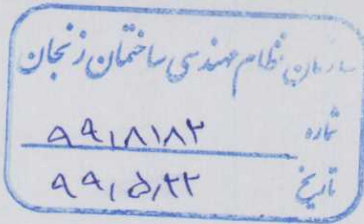 سازمان نظام مهندسی ساختمان زنجان
شماره ۹۹/۸۱۸۲
تاریخ ۹۹/۵/۲۲